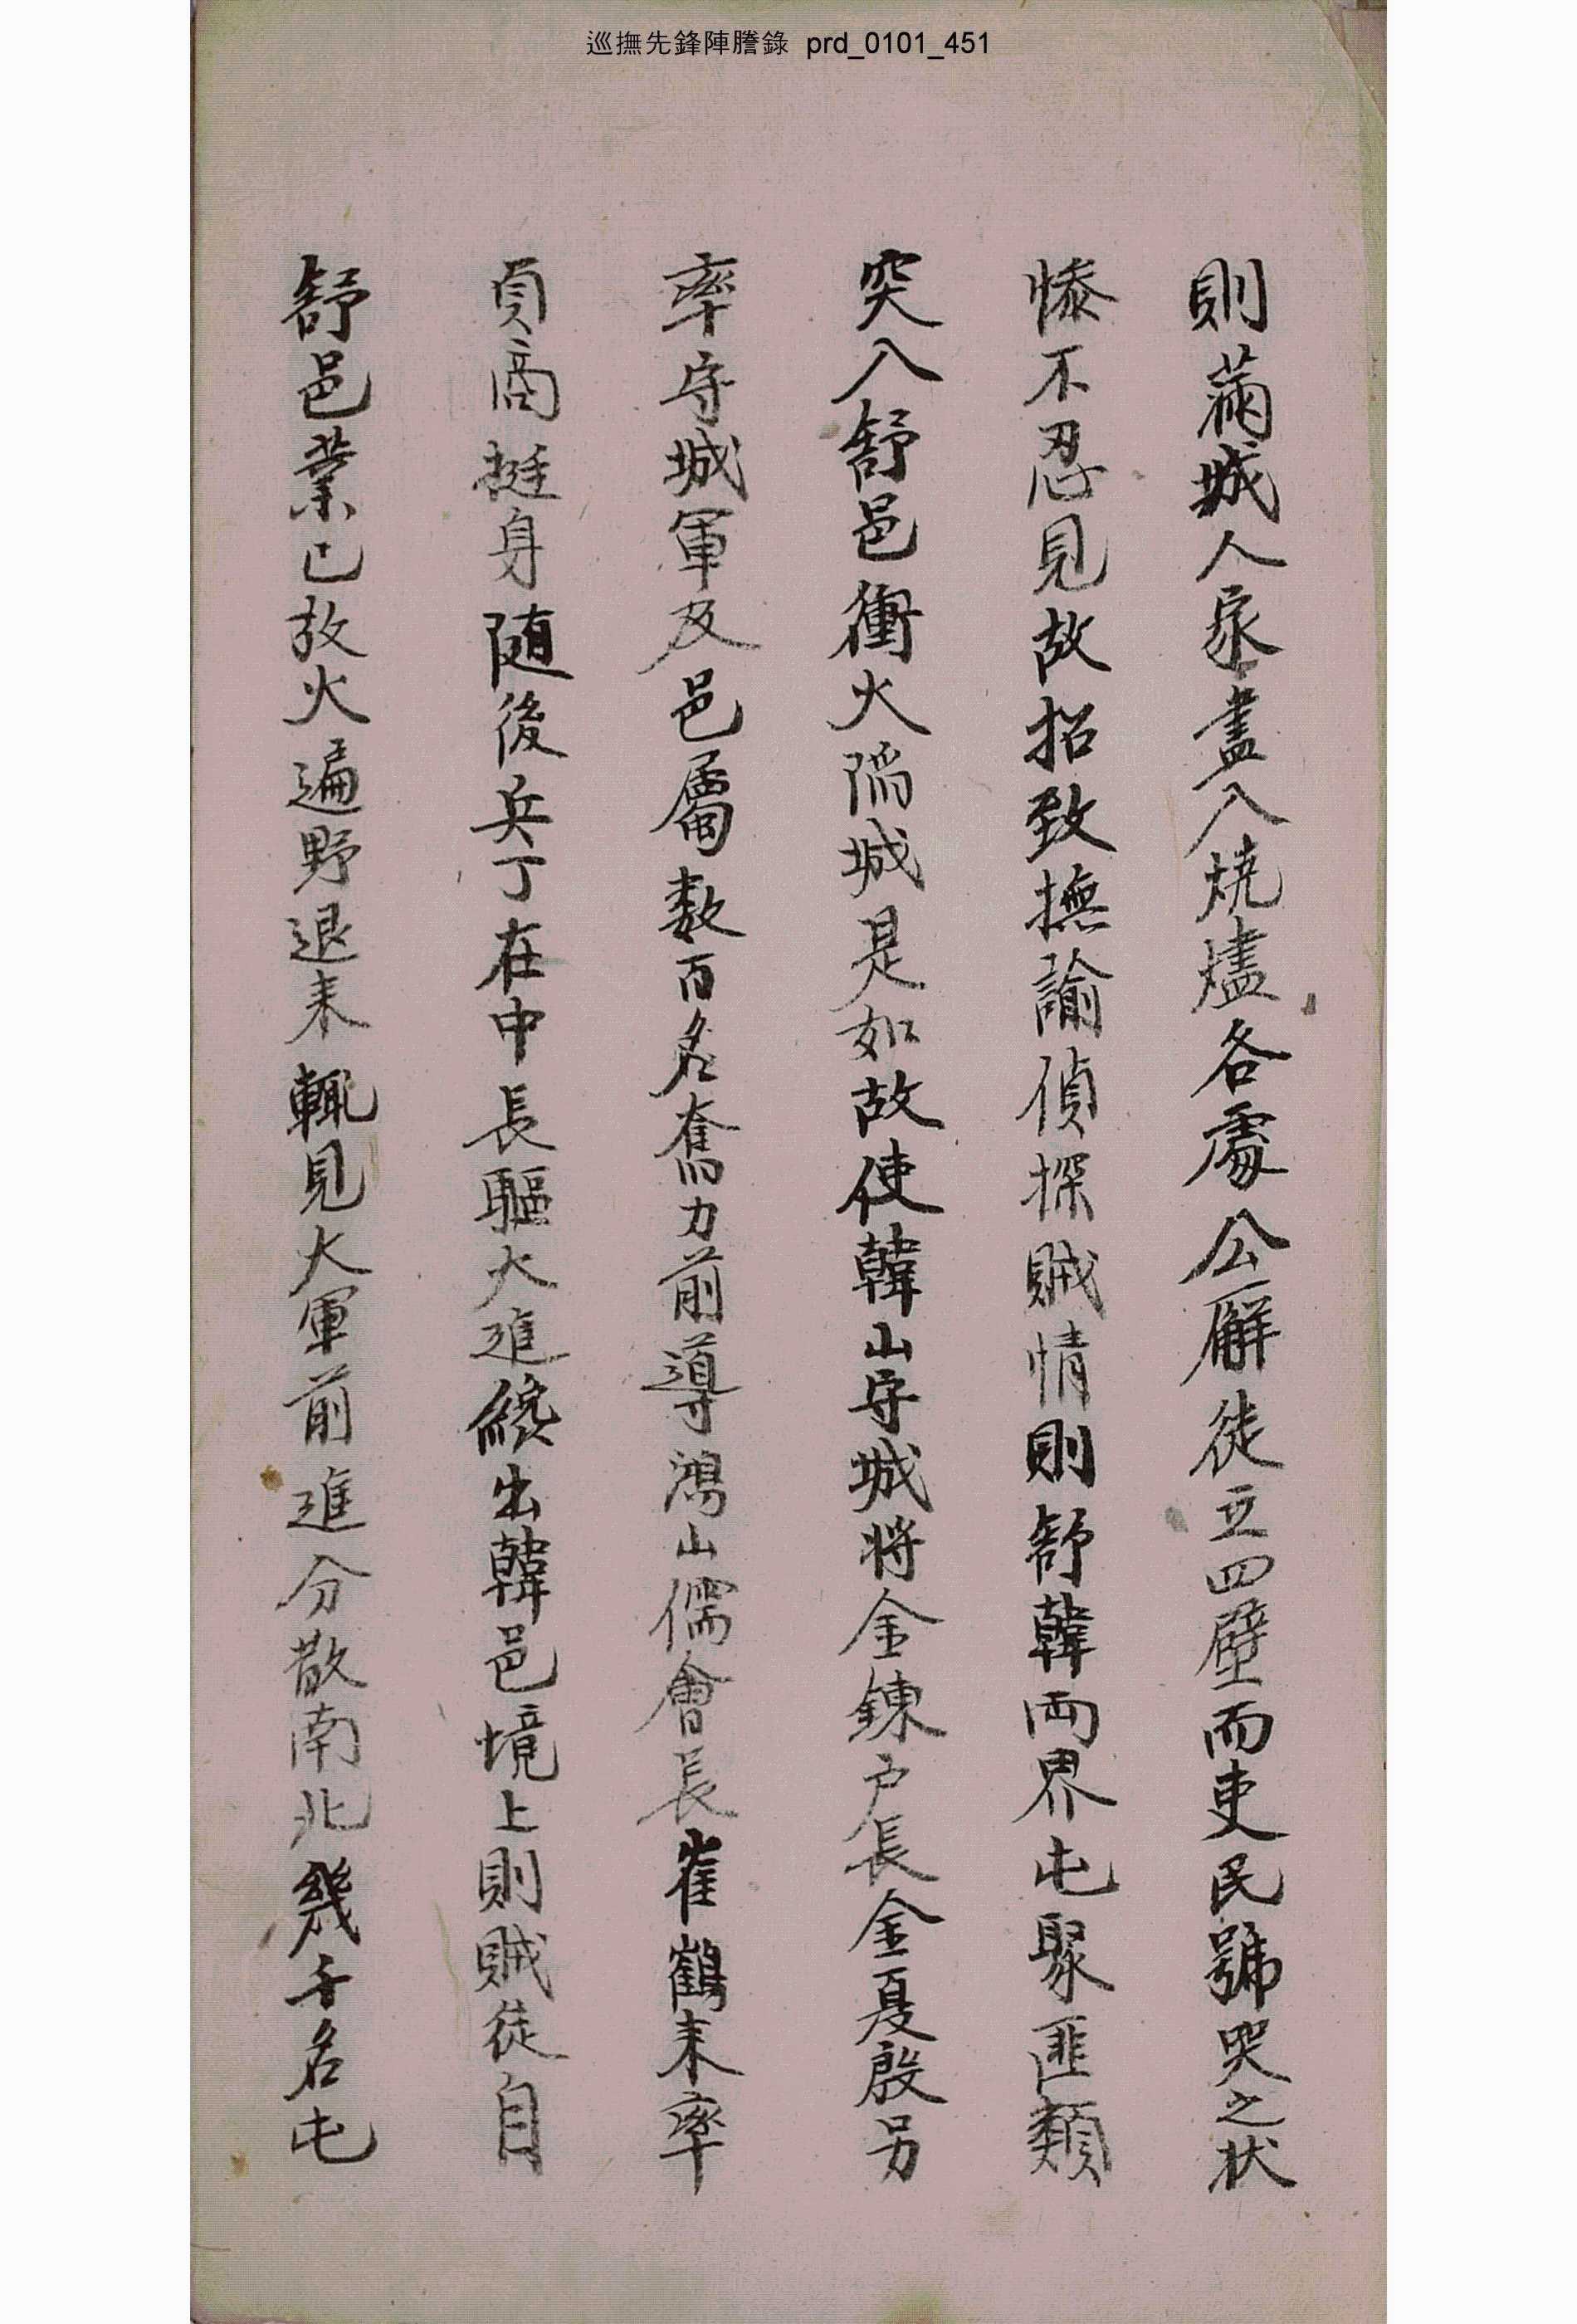 巡撫先鋒陣謄錄 prd_0101_451
則滿城人家盡入燒燼各處公廨徒立四壁而吏民號哭之狀
慘不忍見故招致撫諭偵探賊情則舒韓両界屯聚匪類
突入舒邑衝火陷城是如故使韓山守城將金鍊戶長金夏殷另
率守城軍及邑屬数百名奮力前導鴻山儒會長崔鶴来率
負商挺身随後兵丁在中長驅大進纔出韓邑境上則賊徒自
舒邑業已放火遍野退来輒見大軍前進分散南北幾千名屯